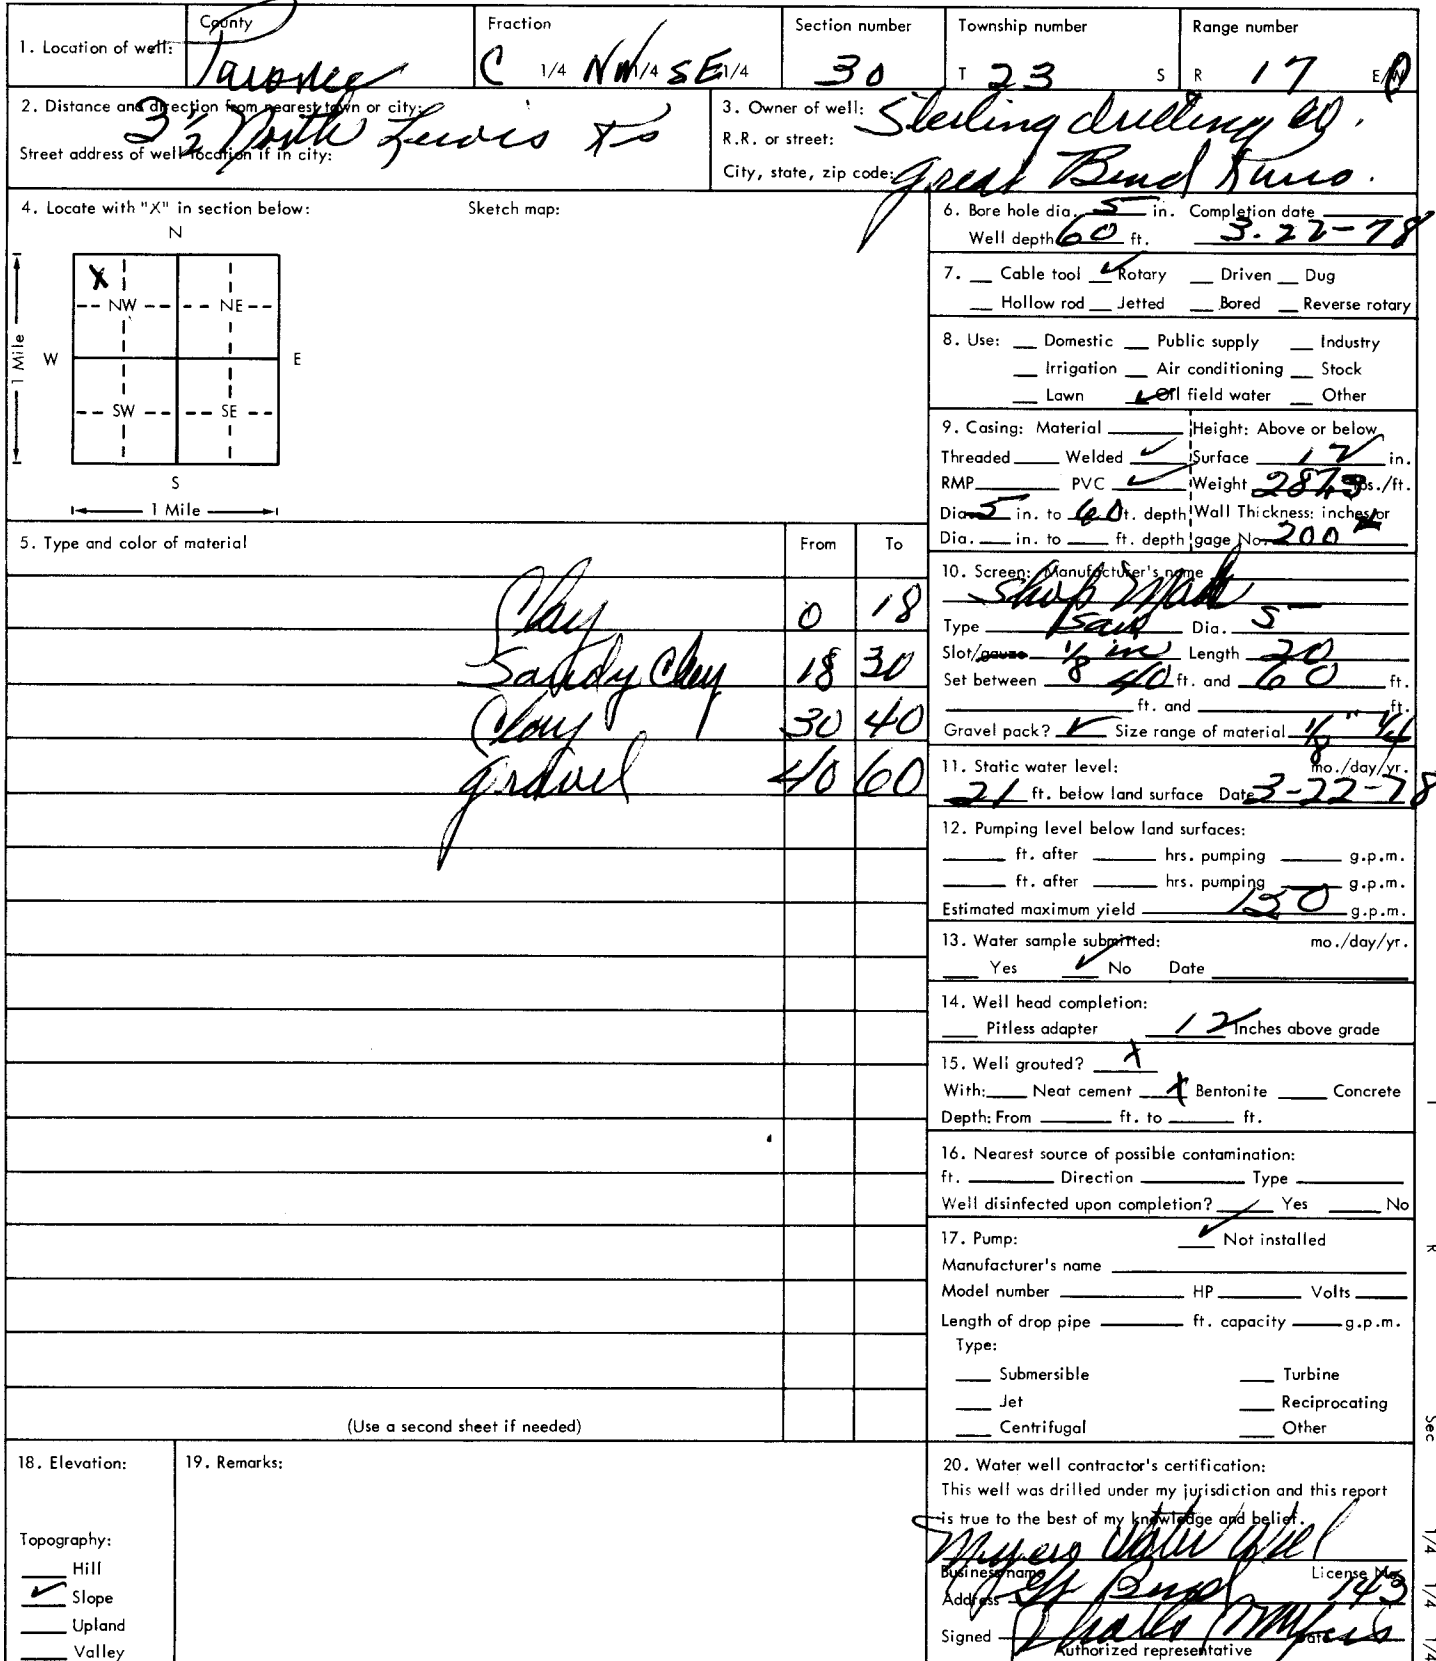 1. Location of well: County Fraction Section number Township number Range number
Pawnee C 1/4 NW 1/4 SE 1/4 30 T 23 S R 17 E/W
2. Distance and direction from nearest town or city:
3 1/2 North Lewis Ks
Street address of well location if in city:
3. Owner of well: Sterling drilling co.
R.R. or street:
City, state, zip code: Great Bend Kans.
4. Locate with "X" in section below: Sketch map:
N
X
NW NE
W E
1 Mile
SW SE
S
1 Mile
5. Type and color of material From To
Clay 0 18
Sandy Clay 18 30
Clay 30 40
gravel 40 60
(Use a second sheet if needed)
6. Bore hole dia. 5 in. Completion date
Well depth 60 ft. 3-22-78
7. Cable tool ✓ Rotary Driven Dug
Hollow rod Jetted Bored Reverse rotary
8. Use: Domestic Public supply Industry
Irrigation Air conditioning Stock
Lawn ✓ Oil field water Other
9. Casing: Material Height: Above or below
Threaded Welded ✓ Surface 12 in.
RMP PVC ✓ Weight lbs./ft.
Dia. 5 in. to 60 ft. depth Wall Thickness: inches or
Dia. in. to ft. depth gage No. 200
10. Screen: Manufacturer's name
Shop Made
Type Saw Dia. 5
Slot/gauze 1/8 in Length 20
Set between 40 ft. and 60 ft.
ft. and ft.
Gravel pack? ✓ Size range of material 1/8" 1/4
11. Static water level: mo./day/yr.
21 ft. below land surface Date 3-22-78
12. Pumping level below land surfaces:
ft. after hrs. pumping g.p.m.
ft. after hrs. pumping g.p.m.
Estimated maximum yield 150 g.p.m.
13. Water sample submitted: mo./day/yr.
Yes ✓ No Date
14. Well head completion:
Pitless adapter 12 Inches above grade
15. Well grouted? X
With: Neat cement X Bentonite Concrete
Depth: From ft. to ft.
16. Nearest source of possible contamination:
ft. Direction Type
Well disinfected upon completion? ✓ Yes No
17. Pump: ✓ Not installed
Manufacturer's name
Model number HP Volts
Length of drop pipe ft. capacity g.p.m.
Type:
Submersible Turbine
Jet Reciprocating
Centrifugal Other
18. Elevation:
Topography:
Hill
✓ Slope
Upland
Valley
19. Remarks:
20. Water well contractor's certification:
This well was drilled under my jurisdiction and this report
is true to the best of my knowledge and belief.
Myers Water Well
Business name License No.
Address Gt Bend 143
Signed Myers Date
Authorized representative
T
R
Sec
1/4 1/4 1/4